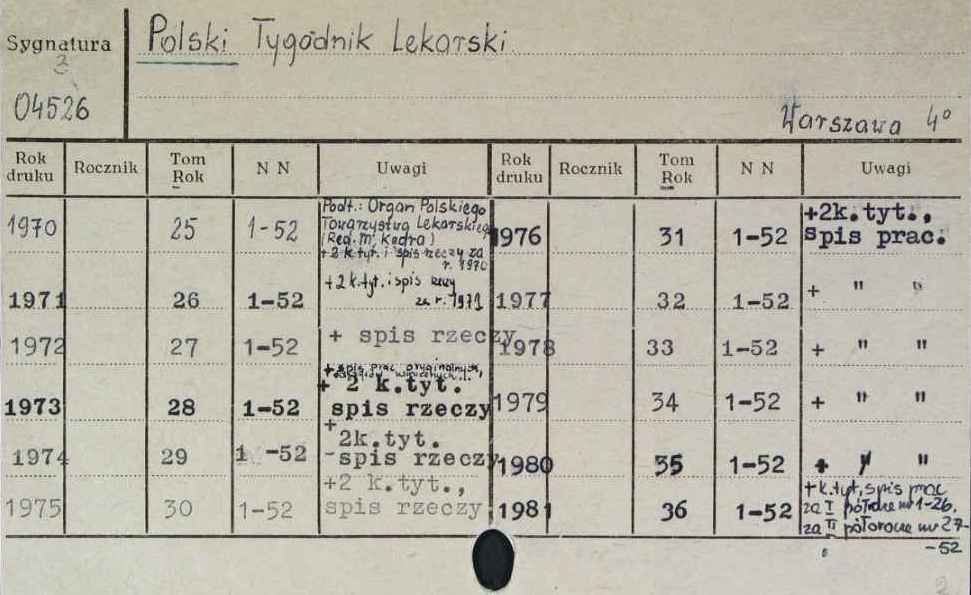 Sygnatura
Polski Tygodnik Lekarski
2
04526
Warszawa 4°
Rok druku Rocznik Tom Rok N N Uwagi Rok druku Rocznik Tom Rok N N Uwagi
1970 25 1-52 Podt.: Organ Polskiego
Towarzystwa Lekarskieg
(Red. M. Kedra)
+2 k.tyt. i spis rzeczy za
r. 1970
1971 26 1-52 +2 k.tyt. i spis rzeczy
za r. 1971
1972 27 1-52 + spis rzeczy
1973 28 1-52 + spis prac oryginalnych,
+ 2 k.tyt.
spis rzeczy
1974 29 1 -52 +
2k.tyt.
-spis rzeczy
1975 30 1-52 +2 k.tyt.,
spis rzeczy
1976 31 1-52 +2k.tyt.,
spis prac.
1977 32 1-52 + " "
1978 33 1-52 + " "
1979 34 1-52 + " "
1980 35 1-52 + " "
1981 36 1-52 +k.tyt, spis prac
za I półrocze nr 1-26,
za II półrocze nr 27-
-52
2